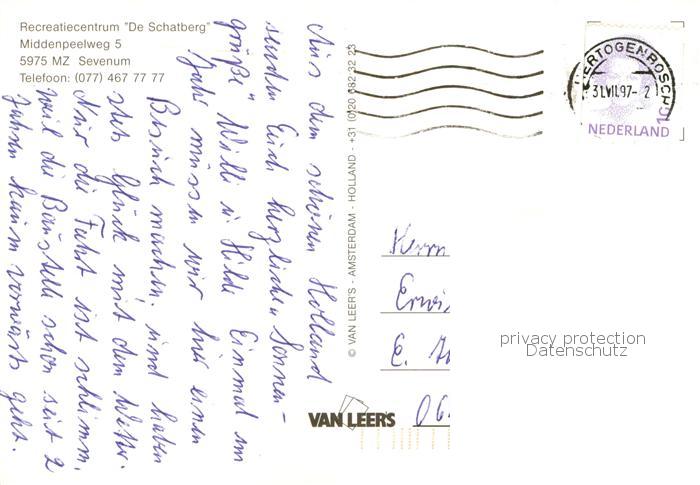 Recreatiecentrum "De Schatberg"
Middenpeelweg 5
5975 MZ Sevenum
Telefoon: (077) 467 77 77
Aus dem schönen Holland
senden Euch herzliche Sonnen-
grüße Willi u Hilde Einmal im
Jahr müssen wir hier einen
Besuch machen, und haben
stets Glück mit dem Wetter.
Nur die Fahrt ist schlimm,
weil die Baustelle schon seit 2
Jahren kaum vorwärts geht.
© VAN LEER'S - AMSTERDAM - HOLLAND - +31 (0)20 682 32 23
VAN LEER'S
'S-HERTOGENBOSCH
31.VII.97- 2
NEDERLAND
Herrn
Erwi
E.
06
privacy protection
Datenschutz